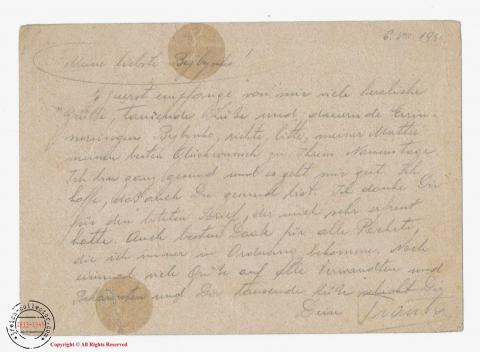 6. VIII. 194
Meine liebste !
Zuerst empfange von mir viele herzliche
Grüße, tausende Küße und dauernde Erin-
nerungen. richte, bitte, meiner Mutter
meinen besten Glückwunsch zu Ihrem Namenstage.
Ich bin ganz gesund und es geht mir gut. Ich
hoffe, daß auch Du gesund bist. Ich danke Dir
für den letzten Brief, der mich sehr erfreut
hatte. Auch besten Dank für alle Packete,
die ich immer in Ordnung bekomme. Noch
einmal viele Grüße auf alle Verwandten und
Bekannten und Dir tausende Küße schickt Dir
Dein
treich-collector.com
1933-1945
Copyright © All Rights Reserved